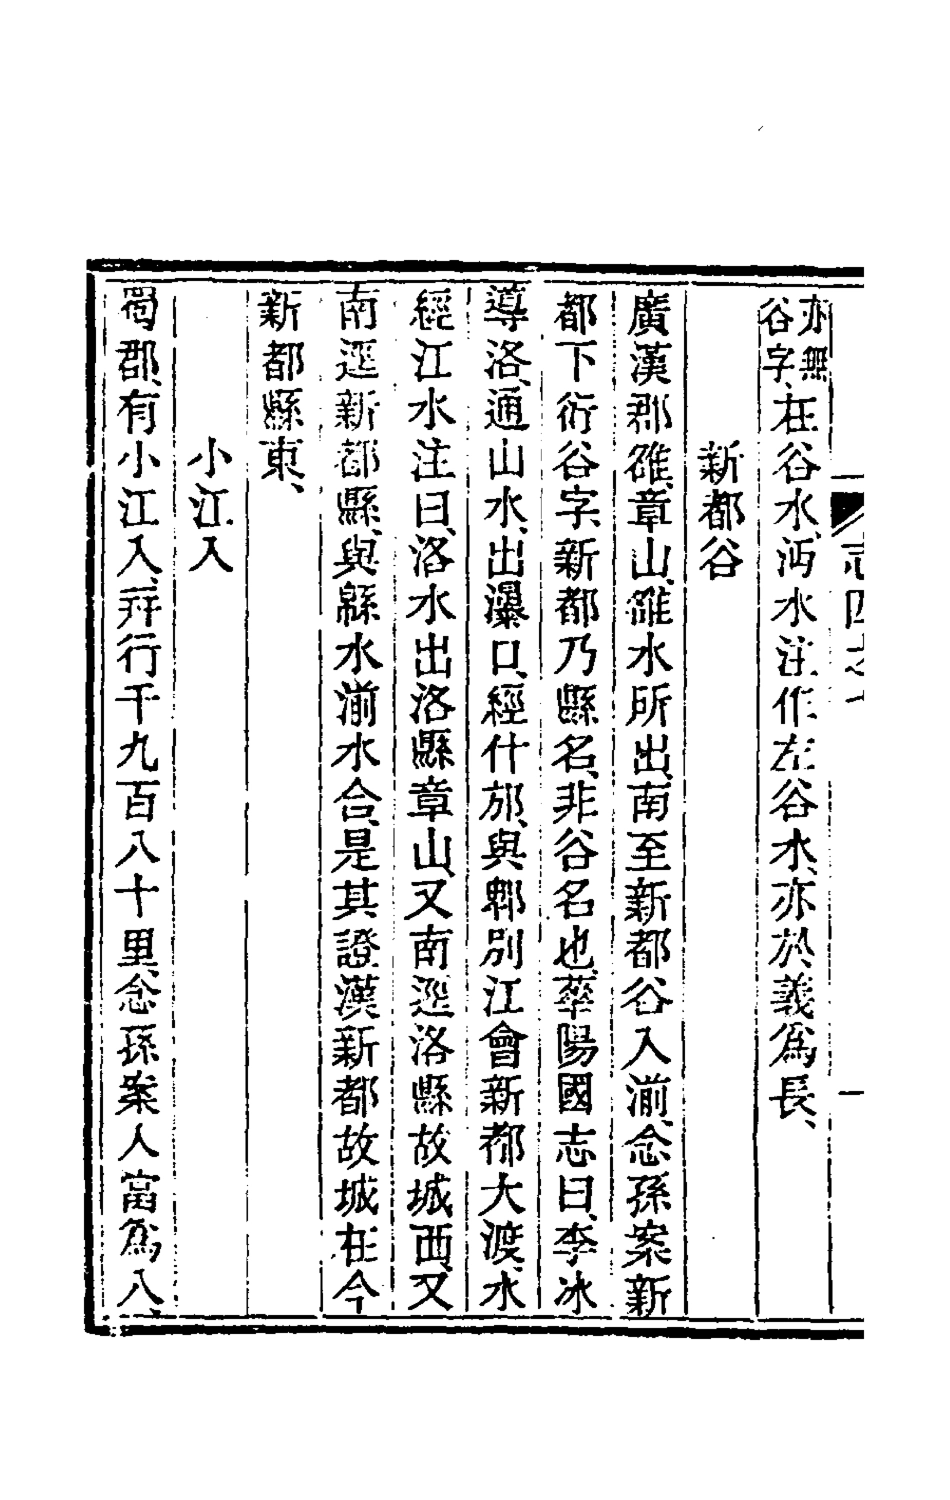 亦無谷字、在谷水、沔水注作左谷水、亦於義爲長、
新都谷
廣漢郡雒、章山、雒水所出、南至新都谷入湔、念孫案新
都下衍谷字、新都乃縣名、非谷名也、華陽國志曰、李冰
導洛、通山水、出瀑口、經什邡、與郫別江會新都大渡、水
經江水注曰、洛水出洛縣章山、又南逕洛縣故城西、又
南逕新都縣、與緜水湔水合、是其證、漢新都故城在今
新都縣東、
小江入
蜀郡、有小江入、幷行千九百八十里、念孫案人當爲八、
志四之七